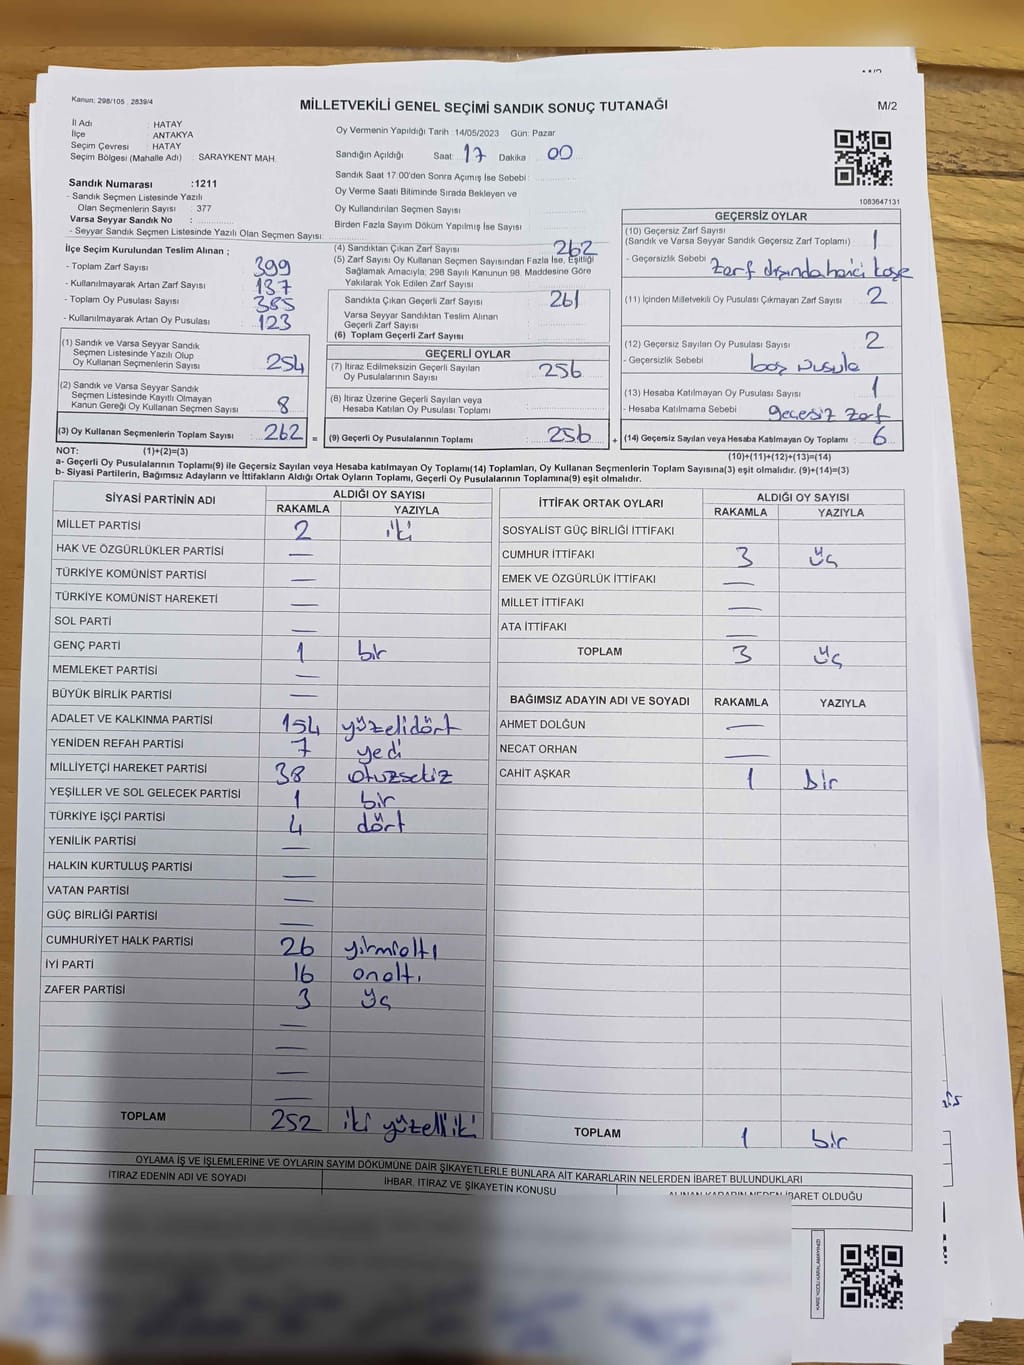 Kanun; 298/105 , 2839/4
MİLLETVEKİLİ GENEL SEÇİMİ SANDIK SONUÇ TUTANAĞI
M/2
İl Adı : HATAY
İlçe : ANTAKYA
Seçim Çevresi : HATAY
Seçim Bölgesi (Mahalle Adı) : SARAYKENT MAH.
Oy Vermenin Yapıldığı Tarih : 14/05/2023 Gün: Pazar
Sandığın Açıldığı Saat: 17 Dakika 00
Sandık Saat 17:00'den Sonra Açımış İse Sebebi :
Oy Verme Saati Bitiminde Sırada Bekleyen ve
Oy Kullandırılan Seçmen Sayısı
Birden Fazla Sayım Döküm Yapılmış İse Sayısı
1083647131
Sandık Numarası :1211
- Sandık Seçmen Listesinde Yazılı
Olan Seçmenlerin Sayısı : 377
Varsa Seyyar Sandık No :
- Seyyar Sandık Seçmen Listesinde Yazılı Olan Seçmen Sayısı:
İlçe Seçim Kurulundan Teslim Alınan ;
- Toplam Zarf Sayısı 399
- Kullanılmayarak Artan Zarf Sayısı 137
- Toplam Oy Pusulası Sayısı 385
- Kullanılmayarak Artan Oy Pusulası 123
(1) Sandık ve Varsa Seyyar Sandık
Seçmen Listesinde Yazılı Olup
Oy Kullanan Seçmenlerin Sayısı 254
(2) Sandık ve Varsa Seyyar Sandık
Seçmen Listesinde Kayıtlı Olmayan
Kanun Gereği Oy Kullanan Seçmen Sayısı 8
(3) Oy Kullanan Seçmenlerin Toplam Sayısı 262 =
(4) Sandıktan Çıkan Zarf Sayısı 262
(5) Zarf Sayısı Oy Kullanan Seçmen Sayısından Fazla İse, Eşitliği
Sağlamak Amacıyla; 298 Sayılı Kanunun 98. Maddesine Göre
Yakılarak Yok Edilen Zarf Sayısı
Sandıkta Çıkan Geçerli Zarf Sayısı 261
Varsa Seyyar Sandıktan Teslim Alınan
Geçerli Zarf Sayısı
(6) Toplam Geçerli Zarf Sayısı
GEÇERLİ OYLAR
(7) İtiraz Edilmeksizin Geçerli Sayılan
Oy Pusulalarının Sayısı 256
(8) İtiraz Üzerine Geçerli Sayılan veya
Hesaba Katılan Oy Pusulası Toplamı
(9) Geçerli Oy Pusulalarının Toplamı 256 +
GEÇERSİZ OYLAR
(10) Geçersiz Zarf Sayısı
(Sandık ve Varsa Seyyar Sandık Geçersiz Zarf Toplamı) 1
- Geçersizlik Sebebi Zarf dışında harici kaşe
(11) İçinden Milletvekili Oy Pusulası Çıkmayan Zarf Sayısı 2
(12) Geçersiz Sayılan Oy Pusulası Sayısı 2
- Geçersizlik Sebebi boş pusula
(13) Hesaba Katılmayan Oy Pusulası Sayısı 1
- Hesaba Katılmama Sebebi geçersiz zarf
(14) Geçersiz Sayılan veya Hesaba Katılmayan Oy Toplamı : 6
NOT: (1)+(2)=(3) (10)+(11)+(12)+(13)=(14)
a- Geçerli Oy Pusulalarının Toplamı(9) ile Geçersiz Sayılan veya Hesaba katılmayan Oy Toplamı(14) Toplamları, Oy Kullanan Seçmenlerin Toplam Sayısına(3) eşit olmalıdır. (9)+(14)=(3)
b- Siyasi Partilerin, Bağımsız Adayların ve İttifakların Aldığı Ortak Oyların Toplamı, Geçerli Oy Pusulalarının Toplamına(9) eşit olmalıdır.
SİYASİ PARTİNİN ADI ALDIĞI OY SAYISI
RAKAMLA YAZIYLA
MİLLET PARTİSİ 2 iki
HAK VE ÖZGÜRLÜKLER PARTİSİ —
TÜRKİYE KOMÜNİST PARTİSİ —
TÜRKİYE KOMÜNİST HAREKETİ —
SOL PARTİ —
GENÇ PARTİ 1 bir
MEMLEKET PARTİSİ —
BÜYÜK BİRLİK PARTİSİ —
ADALET VE KALKINMA PARTİSİ 154 yüzelidört
YENİDEN REFAH PARTİSİ 7 yedi
MİLLİYETÇİ HAREKET PARTİSİ 38 otuzsekiz
YEŞİLLER VE SOL GELECEK PARTİSİ 1 bir
TÜRKİYE İŞÇİ PARTİSİ 4 dört
YENİLİK PARTİSİ —
HALKIN KURTULUŞ PARTİSİ —
VATAN PARTİSİ —
GÜÇ BİRLİĞİ PARTİSİ —
CUMHURİYET HALK PARTİSİ 26 yirmialtı
İYİ PARTİ 16 onaltı
ZAFER PARTİSİ 3 üç
—
—
—
—
TOPLAM 252 iki yüzelliiki
İTTİFAK ORTAK OYLARI ALDIĞI OY SAYISI
RAKAMLA YAZIYLA
SOSYALİST GÜÇ BİRLİĞİ İTTİFAKI
CUMHUR İTTİFAKI 3 üç
EMEK VE ÖZGÜRLÜK İTTİFAKI —
MİLLET İTTİFAKI —
ATA İTTİFAKI —
TOPLAM 3 üç
BAĞIMSIZ ADAYIN ADI VE SOYADI RAKAMLA YAZIYLA
AHMET DOLĞUN —
NECAT ORHAN —
CAHİT AŞKAR 1 bir
TOPLAM 1 bir
OYLAMA İŞ VE İŞLEMLERİNE VE OYLARIN SAYIM DÖKÜMÜNE DAİR ŞİKAYETLERLE BUNLARA AİT KARARLARIN NELERDEN İBARET BULUNDUKLARI
İTİRAZ EDENİN ADI VE SOYADI İHBAR, İTİRAZ VE ŞİKAYETİN KONUSU ALINAN KARARIN NEDEN İBARET OLDUĞU
KARE KODU KARALAMAYINIZ!